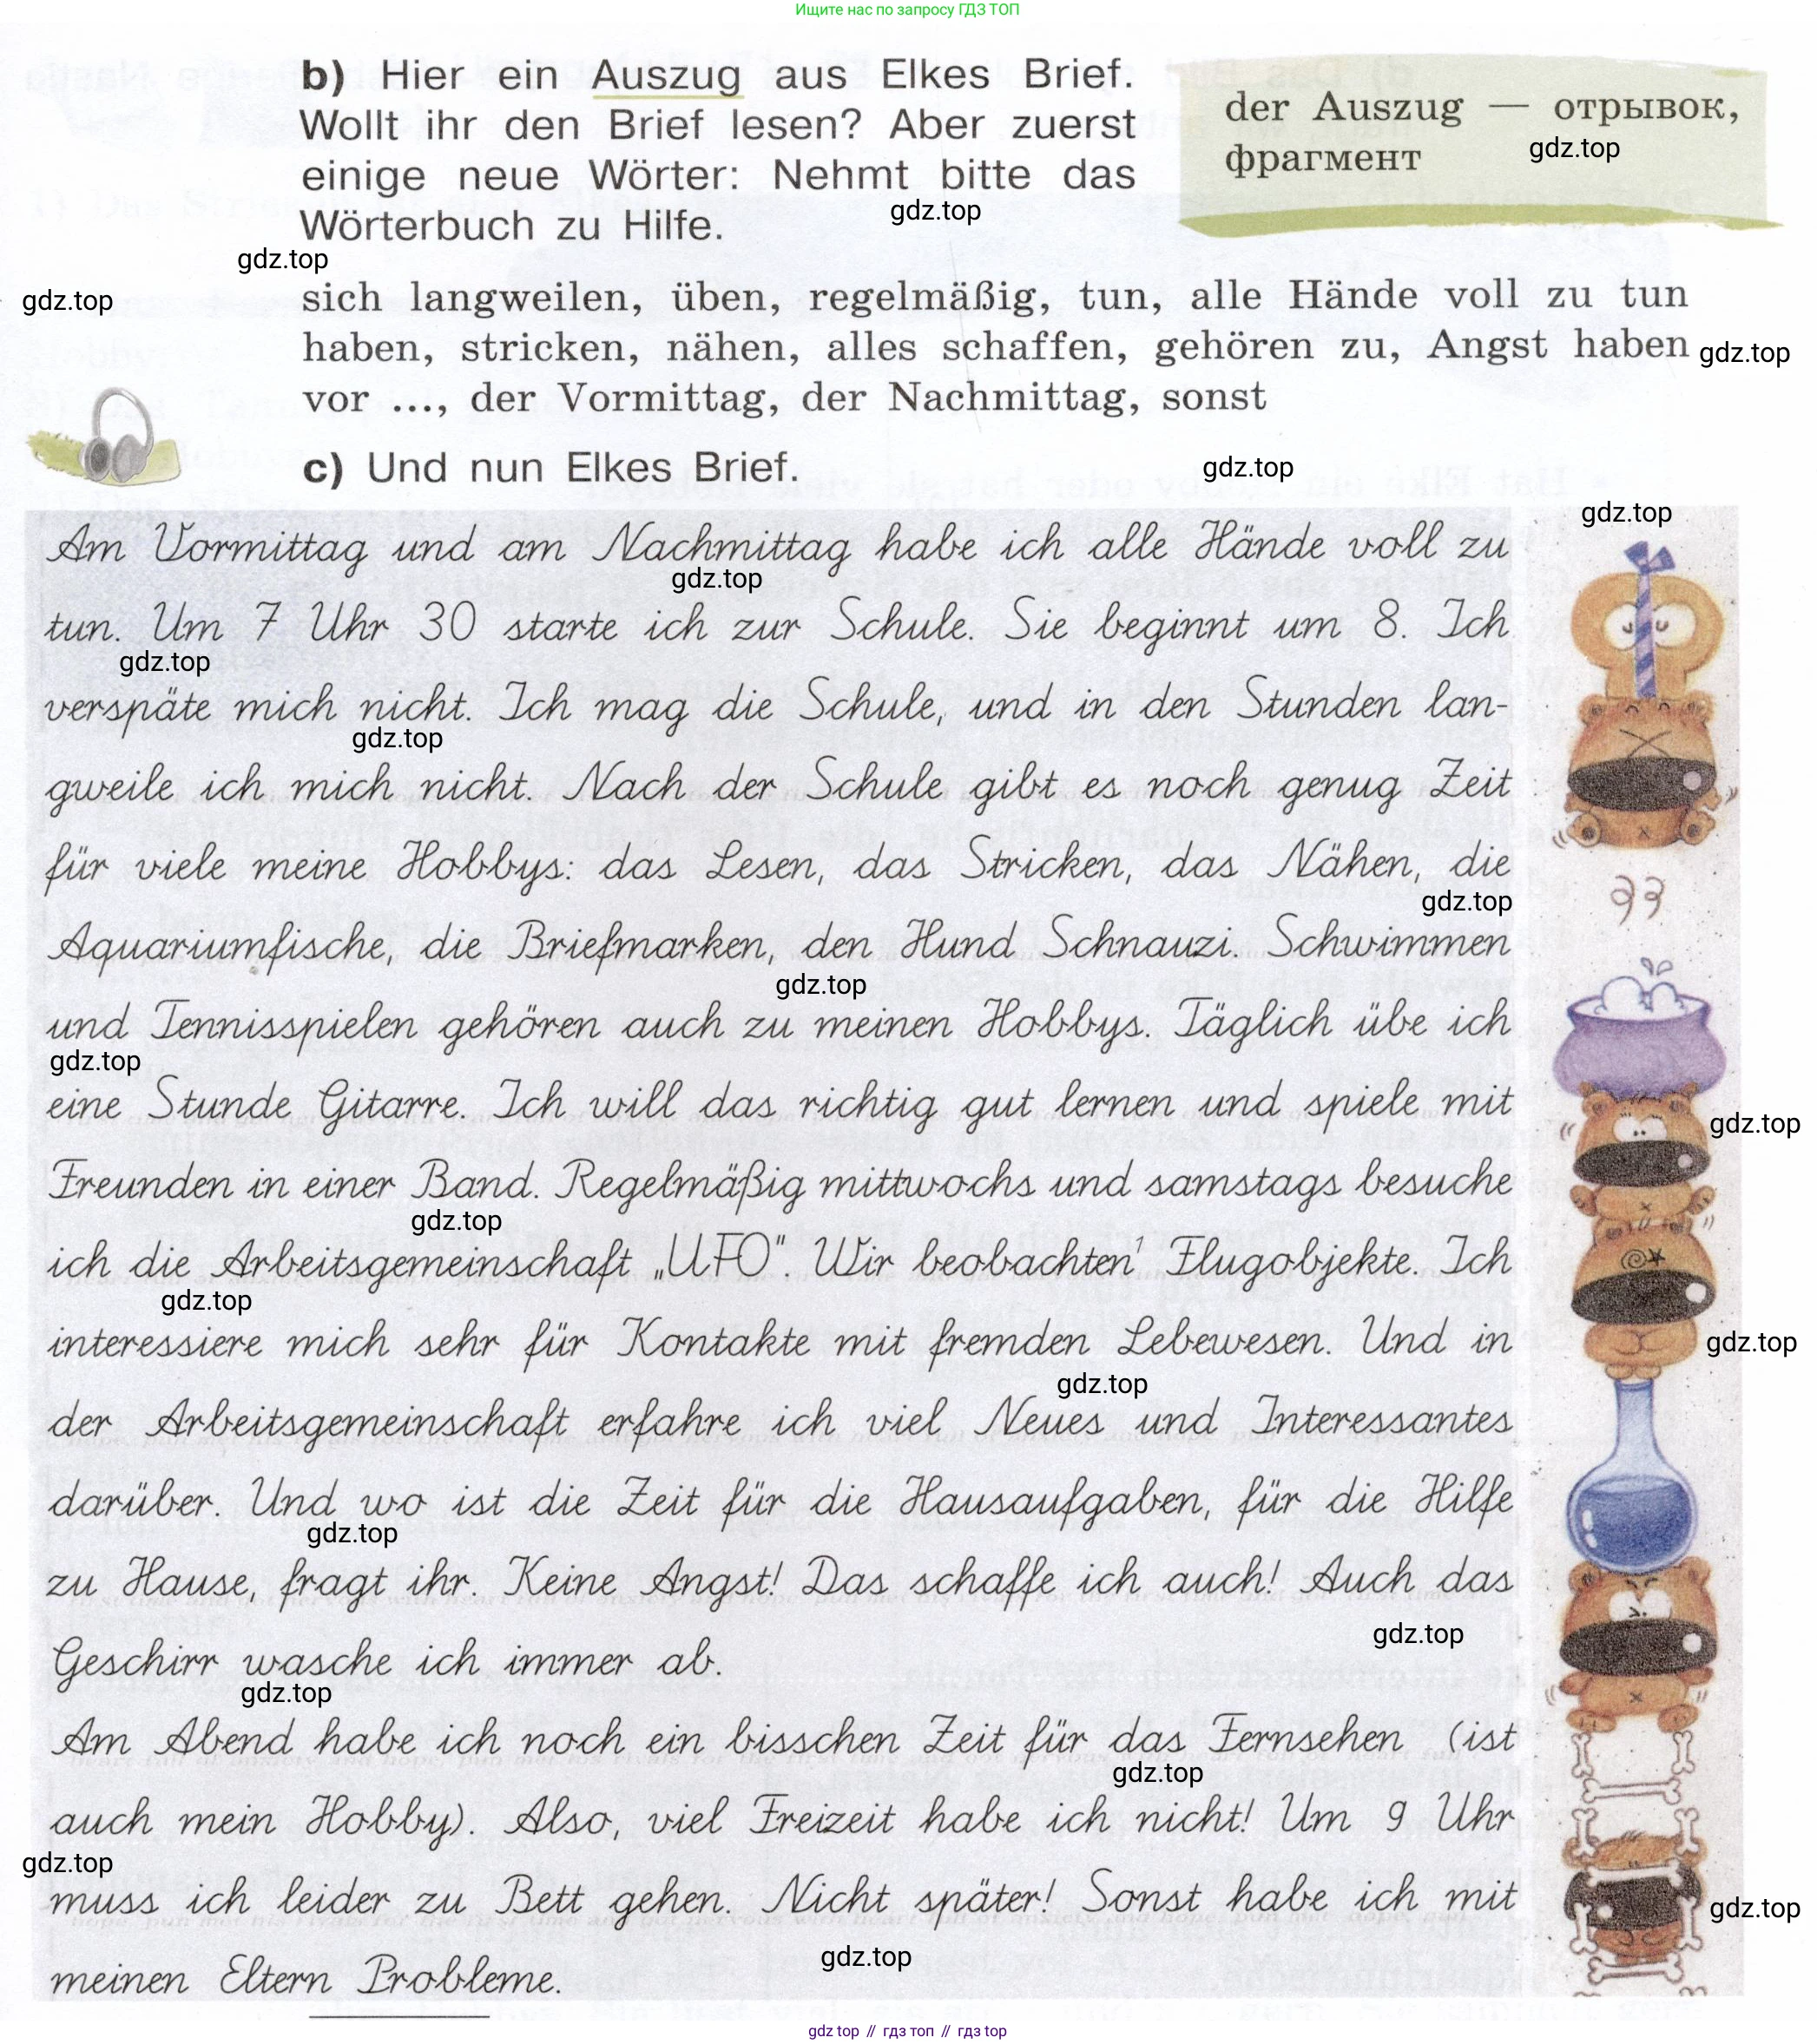 Ищите нас по запросу ГДЗ ТОП
b) Hier ein Auszug aus Elkes Brief.
Wollt ihr den Brief lesen? Aber zuerst
einige neue Wörter: Nehmt bitte das
Wörterbuch zu Hilfe.
der Auszug — отрывок,
фрагмент
gdz.top
gdz.top
gdz.top
gdz.top
sich langweilen, üben, regelmäßig, tun, alle Hände voll zu tun
haben, stricken, nähen, alles schaffen, gehören zu, Angst haben
gdz.top
vor ..., der Vormittag, der Nachmittag, sonst
c) Und nun Elkes Brief.
gdz.top
gdz.top
Am Vormittag und am Nachmittag habe ich alle Hände voll zu
gdz.top
tun. Um 7 Uhr 30 starte ich zur Schule. Sie beginnt um 8. Ich
gdz.top
verspäte mich nicht. Ich mag die Schule, und in den Stunden lan-
gdz.top
gweile ich mich nicht. Nach der Schule gibt es noch genug Zeit
für viele meine Hobbys: das Lesen, das Stricken, das Nähen, die
gdz.top
Aquariumfische, die Briefmarken, den Hund Schnauzi. Schwimmen
gdz.top
und Tennisspielen gehören auch zu meinen Hobbys. Täglich übe ich
gdz.top
eine Stunde Gitarre. Ich will das richtig gut lernen und spiele mit
gdz.top
Freunden in einer Band. Regelmäßig mittwochs und samstags besuche
gdz.top
ich die Arbeitsgemeinschaft „UFO". Wir beobachten¹ Flugobjekte. Ich
gdz.top
interessiere mich sehr für Kontakte mit fremden Lebewesen. Und in
gdz.top
gdz.top
der Arbeitsgemeinschaft erfahre ich viel Neues und Interessantes
darüber. Und wo ist die Zeit für die Hausaufgaben, für die Hilfe
gdz.top
zu Hause, fragt ihr. Keine Angst! Das schaffe ich auch! Auch das
gdz.top
Geschirr wasche ich immer ab.
gdz.top
Am Abend habe ich noch ein bisschen Zeit für das Fernsehen (ist
gdz.top
auch mein Hobby). Also, viel Freizeit habe ich nicht! Um 9 Uhr
gdz.top
muss ich leider zu Bett gehen. Nicht später! Sonst habe ich mit
gdz.top
gdz.top
meinen Eltern Probleme.
gdz top // гдз топ // gdz top